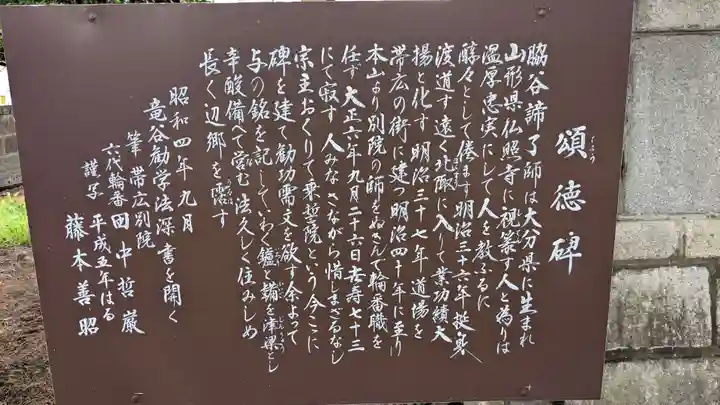 頌徳碑
しょうとく
脇谷諦了師は大分県に生まれ
山形県仏照寺に視篆す人と為りは
温厚忠実にして人を教ふるに
醇々として倦ます明治三十六年挺身
渡道す遠く北陬に入りて業功績大
揚と化す明治三十七年道場を
帯広の街に建つ明治四十年に至り
本山より別院の師をぬさんで輪番職を
任ず大正六年九月二十六日古寿七十三
にて寂す人みなさながら惜しまざるなし
宗主おくりて乗哲院という今ここに
碑を建て勧功需文を欲す余よって
与の銘を記していわく鑪と鞴を津梁とし
辛酸備へて営む法久しく住みしめ
長く辺郷を霑す
昭和四年九月
竜谷勧学法深書を開く
筆帯広別院
六代輪番田中哲厳
謹写平成五年はる
藤本善昭